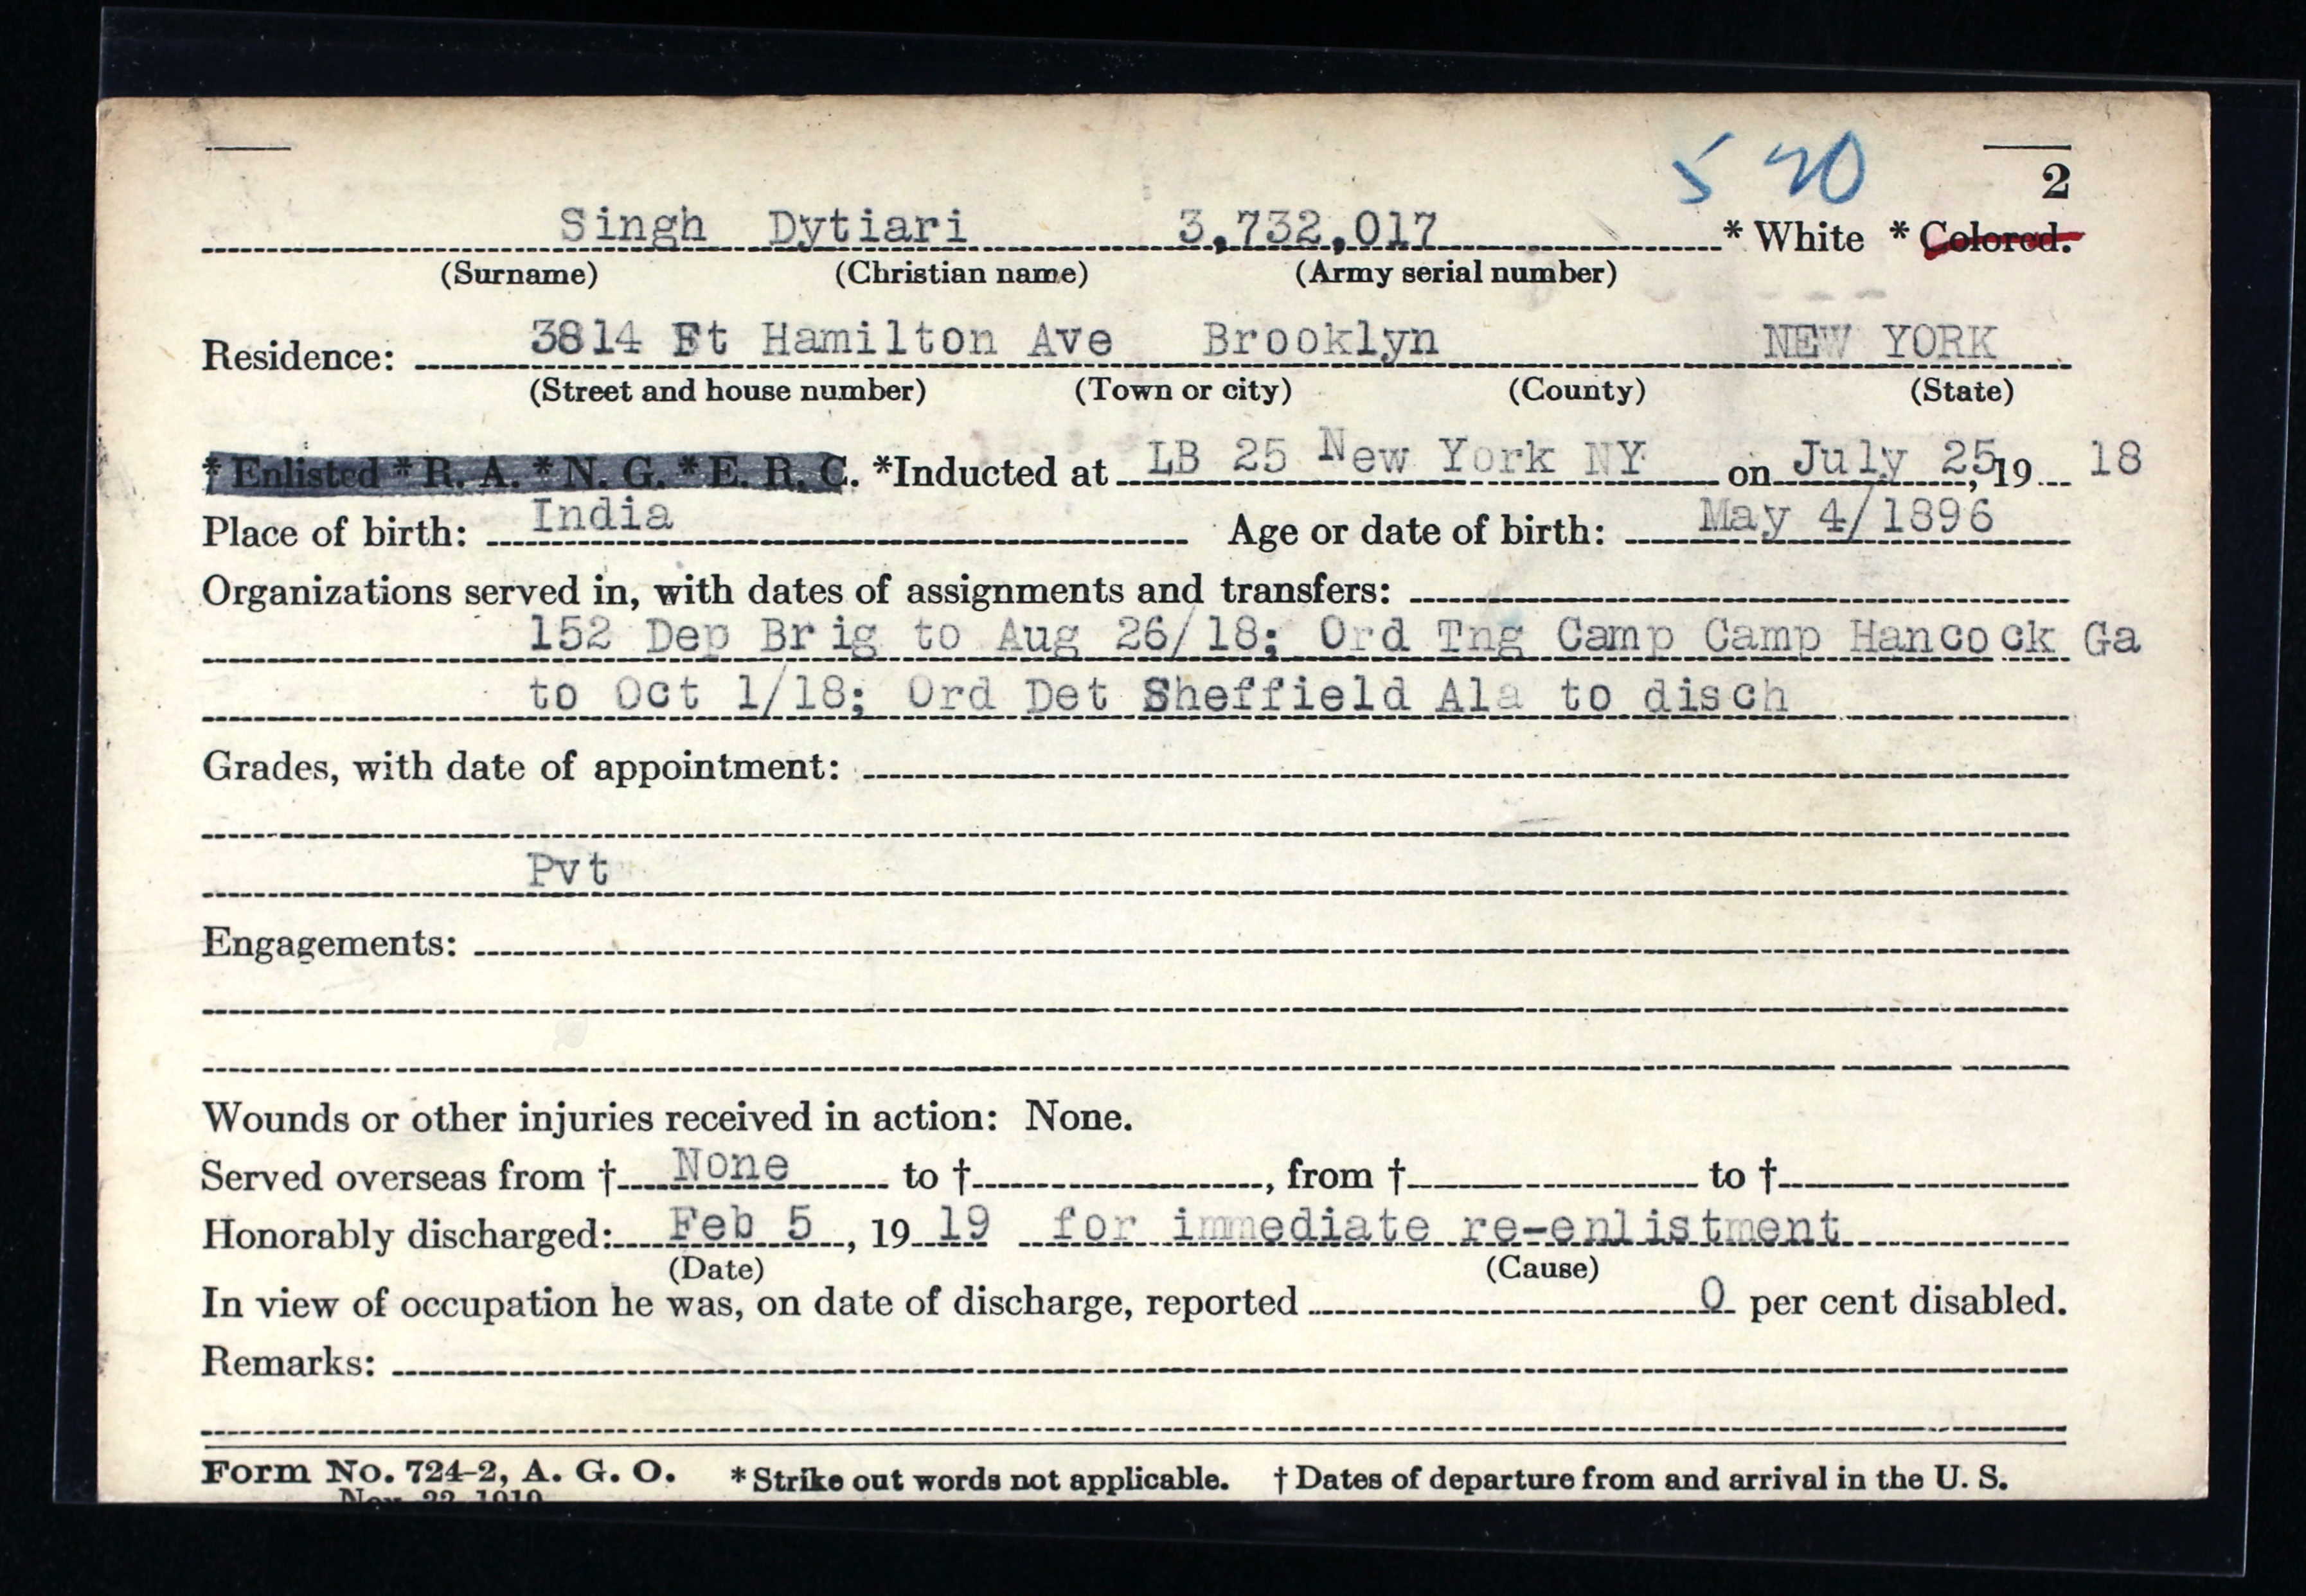 5 20
2
Singh Dytiari 3,732,017 * White * Colored.
(Surname) (Christian name) (Army serial number)
Residence: 3814 Ft Hamilton Ave Brooklyn NEW YORK
(Street and house number) (Town or city) (County) (State)
* Enlisted * R. A. * N. G. * E. R. C. *Inducted at LB 25 New York NY on July 25, 19 18
Place of birth: India Age or date of birth: May 4/1896
Organizations served in, with dates of assignments and transfers:
152 Dep Brig to Aug 26/18; Ord Tng Camp Camp Hancock Ga
to Oct 1/18; Ord Det Sheffield Ala to disch
Grades, with date of appointment:
Pvt
Engagements:
Wounds or other injuries received in action: None.
Served overseas from † None to †, from † to †
Honorably discharged: Feb 5, 19 19 for immediate re-enlistment
(Date) (Cause)
In view of occupation he was, on date of discharge, reported 0 per cent disabled.
Remarks:
Form No. 724-2, A. G. O. * Strike out words not applicable. † Dates of departure from and arrival in the U. S.
Nov. 22, 1919